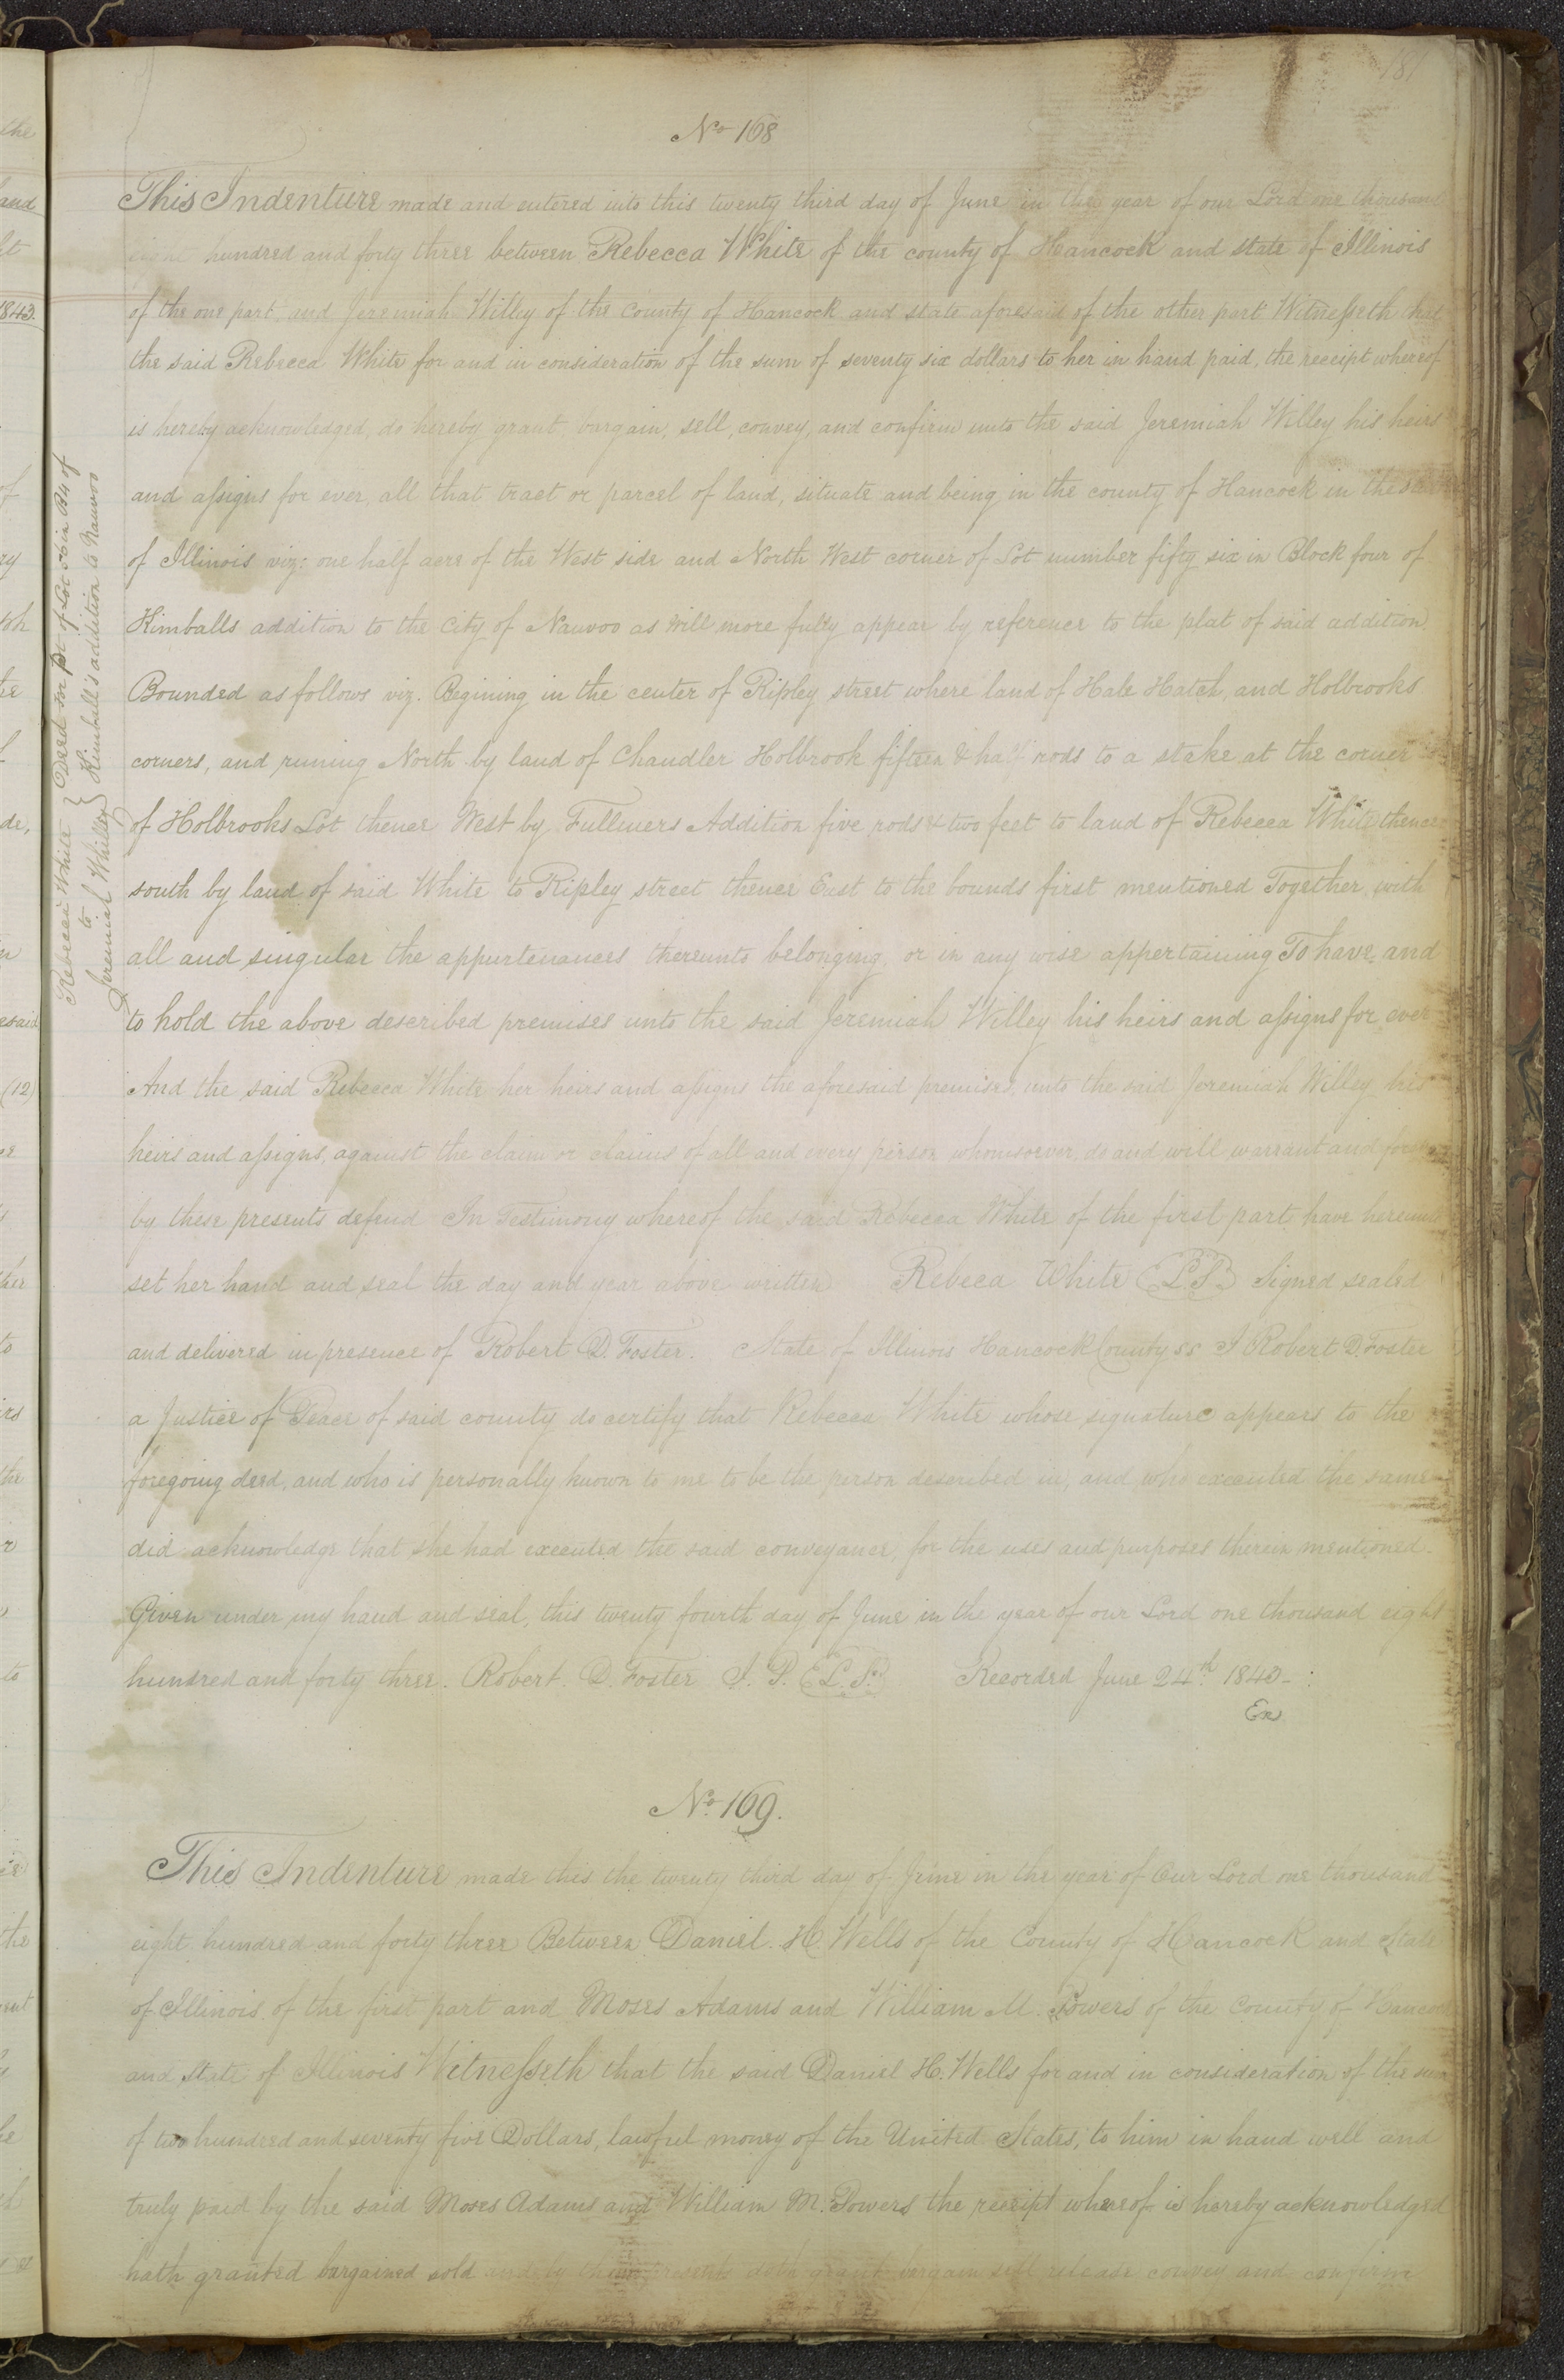 181
No 168
This Indenture made and entered into this twenty third day of June in the year of our Lord one thousand
eight hundred and forty three between Rebecca White of the county of Hancock and state of Illinois
of the one part, and Jeremiah Willey of the County of Hancock and state aforesaid of the other part Witnesseth that
the said Rebecca White for and in consideration of the sum of seventy six dollars to her in hand paid, the receipt whereof
is hereby acknowledged, do hereby grant, bargain, sell, convey, and confirm unto the said Jeremiah Willey his heirs
and assigns for ever, all that tract or parcel of land, situate and being in the county of Hancock in the
of Illinois viz: one half acre of the West side and North West corner of Lot number fifty six in Block four of
Kimballs addition to the City of Nauvoo as will more fully appear by reference to the plat of said addition.
Bounded as follows viz. Begining in the center of Ripley street where land of Hale Hatch, and Holbrooks
corners, and runing North by land of Chandler Holbrook fifteen & half rods to a stake at the corner
of Holbrooks Lot thence West by Fullmers Addition five rods & two feet to land of Rebecca White thence
south by land of said White to Ripley street thence East to the bounds first mentioned Together with
all and singular the appurtenances thereunto belonging, or in any wise appertaining To have and
to hold the above described premises unto the said Jeremiah Willey his heirs and assigns for ever
And the said Rebecca White her heirs and assigns the aforesaid premises, unto the said Jeremiah Willey his
heirs and assigns, against the claim or claims of all and every person whomsoever, do and will warrant and forever
by these presents defend In Testimony whereof the said Rebecca White of the first part have hereunto
set her hand and seal the day and year above written Rebeca White L.S. Signed sealed
and delivered in presence of Robert D. Foster. State of Illinois Hancock County ss I Robert D. Foster
a Justice of Peace of said county do certify that Rebecca White whose signature appears to the
foregoing deed, and who is personally known to me to be the person described in, and who executed the same
did acknowledge that she had executed the said conveyance, for the uses and purposes therein mentioned.
Given under my hand and seal, this twenty fourth day of June in the year of our Lord one thousand eight
hundred and forty three. Robert. D. Foster J. P. L.S. Recorded June 24th 1843
Ex
Rebecca White
to
Jeremiah Whilley
Deed for pt of Lot 56 in B4 of
Kimball's addition to Nauvoo
No. 169.
This Indenture made this the twenty third day of June in the year of Our Lord one thousand
eight hundred and forty three Between Daniel. H. Wells of the County of Hancock and State
of Illinois of the first part and Moses Adams and William M. Powers of the County of Hancock
and State of Illinois Witnesseth that the said Daniel H. Wells for and in consideration of the sum
of two hundred and seventy five Dollars, lawful money of the United States, to him in hand well and
truly paid by the said Moses Adams and William M. Powers the receipt whereof is hereby acknowledged
hath granted bargained sold and by these presents doth grant bargain sell release convey and confirm